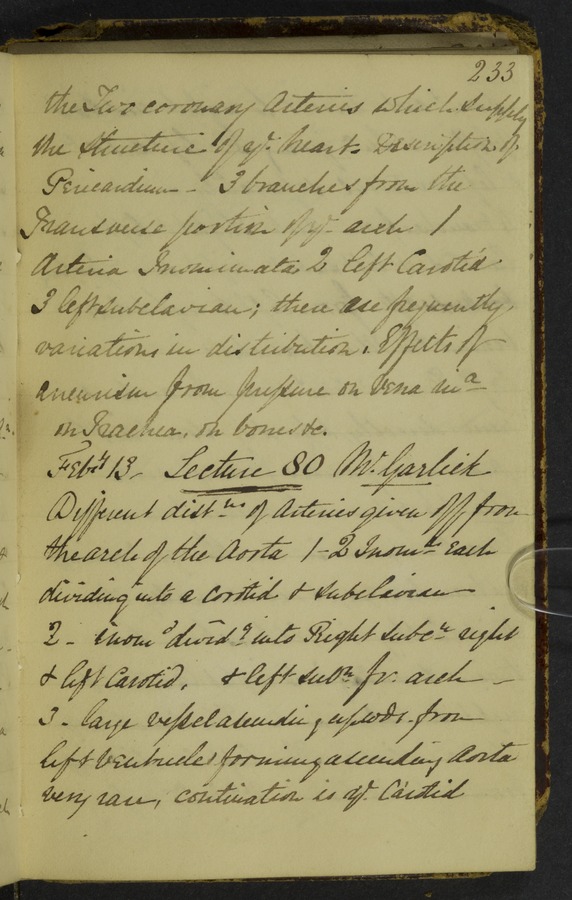 233
the Two coronary Arteries which supply
the structure of ye. heart. Description of
Pericardium - 3 branches from the
Transverse portion of ye. arch 1
Arteria Inominata 2 left Carotid
3 left subclavian; there are frequently
variations in distribution. Effects of
aneurism from pressure on Vena
on Trachea, on bones &c.
Feby 13, Lecture 80 Mr. Garlick
Different distns of Arteries given off from
the arch of the Aorta 1-2 Inomta Each
dividing into a carotid & subclavian
2 - inoma dividg into Right subcn right
& left Carotid, & left subn fr. arch -
3 - large vessel ascending upwds from
left Ventricle forming ascending Aorta
very rare, contination is ye. Carotid